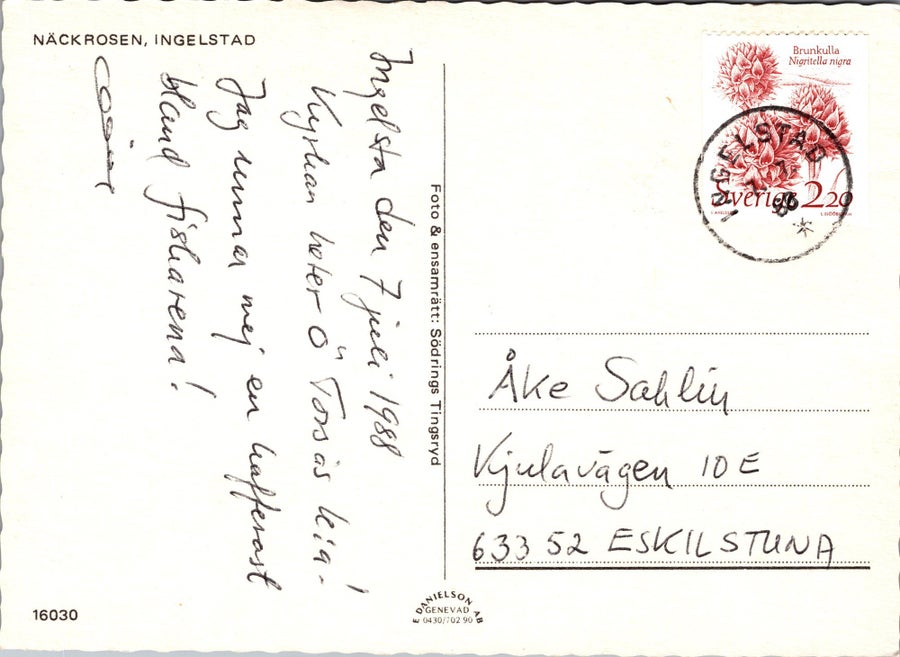 NÄCKROSEN, INGELSTAD
Ingelsta den 7 juli 1988
Kyrkan heter Ö Torsås kia-!
Jag unnar mej en kafferast
bland fiskarena!
Foto & ensamrätt: Södrings Tingsryd
Brunkulla
Nigritella nigra
Sverige 2 20
INGELSTAD
Åke Sahlin
Kjulavägen 10 E
633 52 ESKILSTUNA
16030
E DANIELSON AB
GENEVAD
0430/702 90